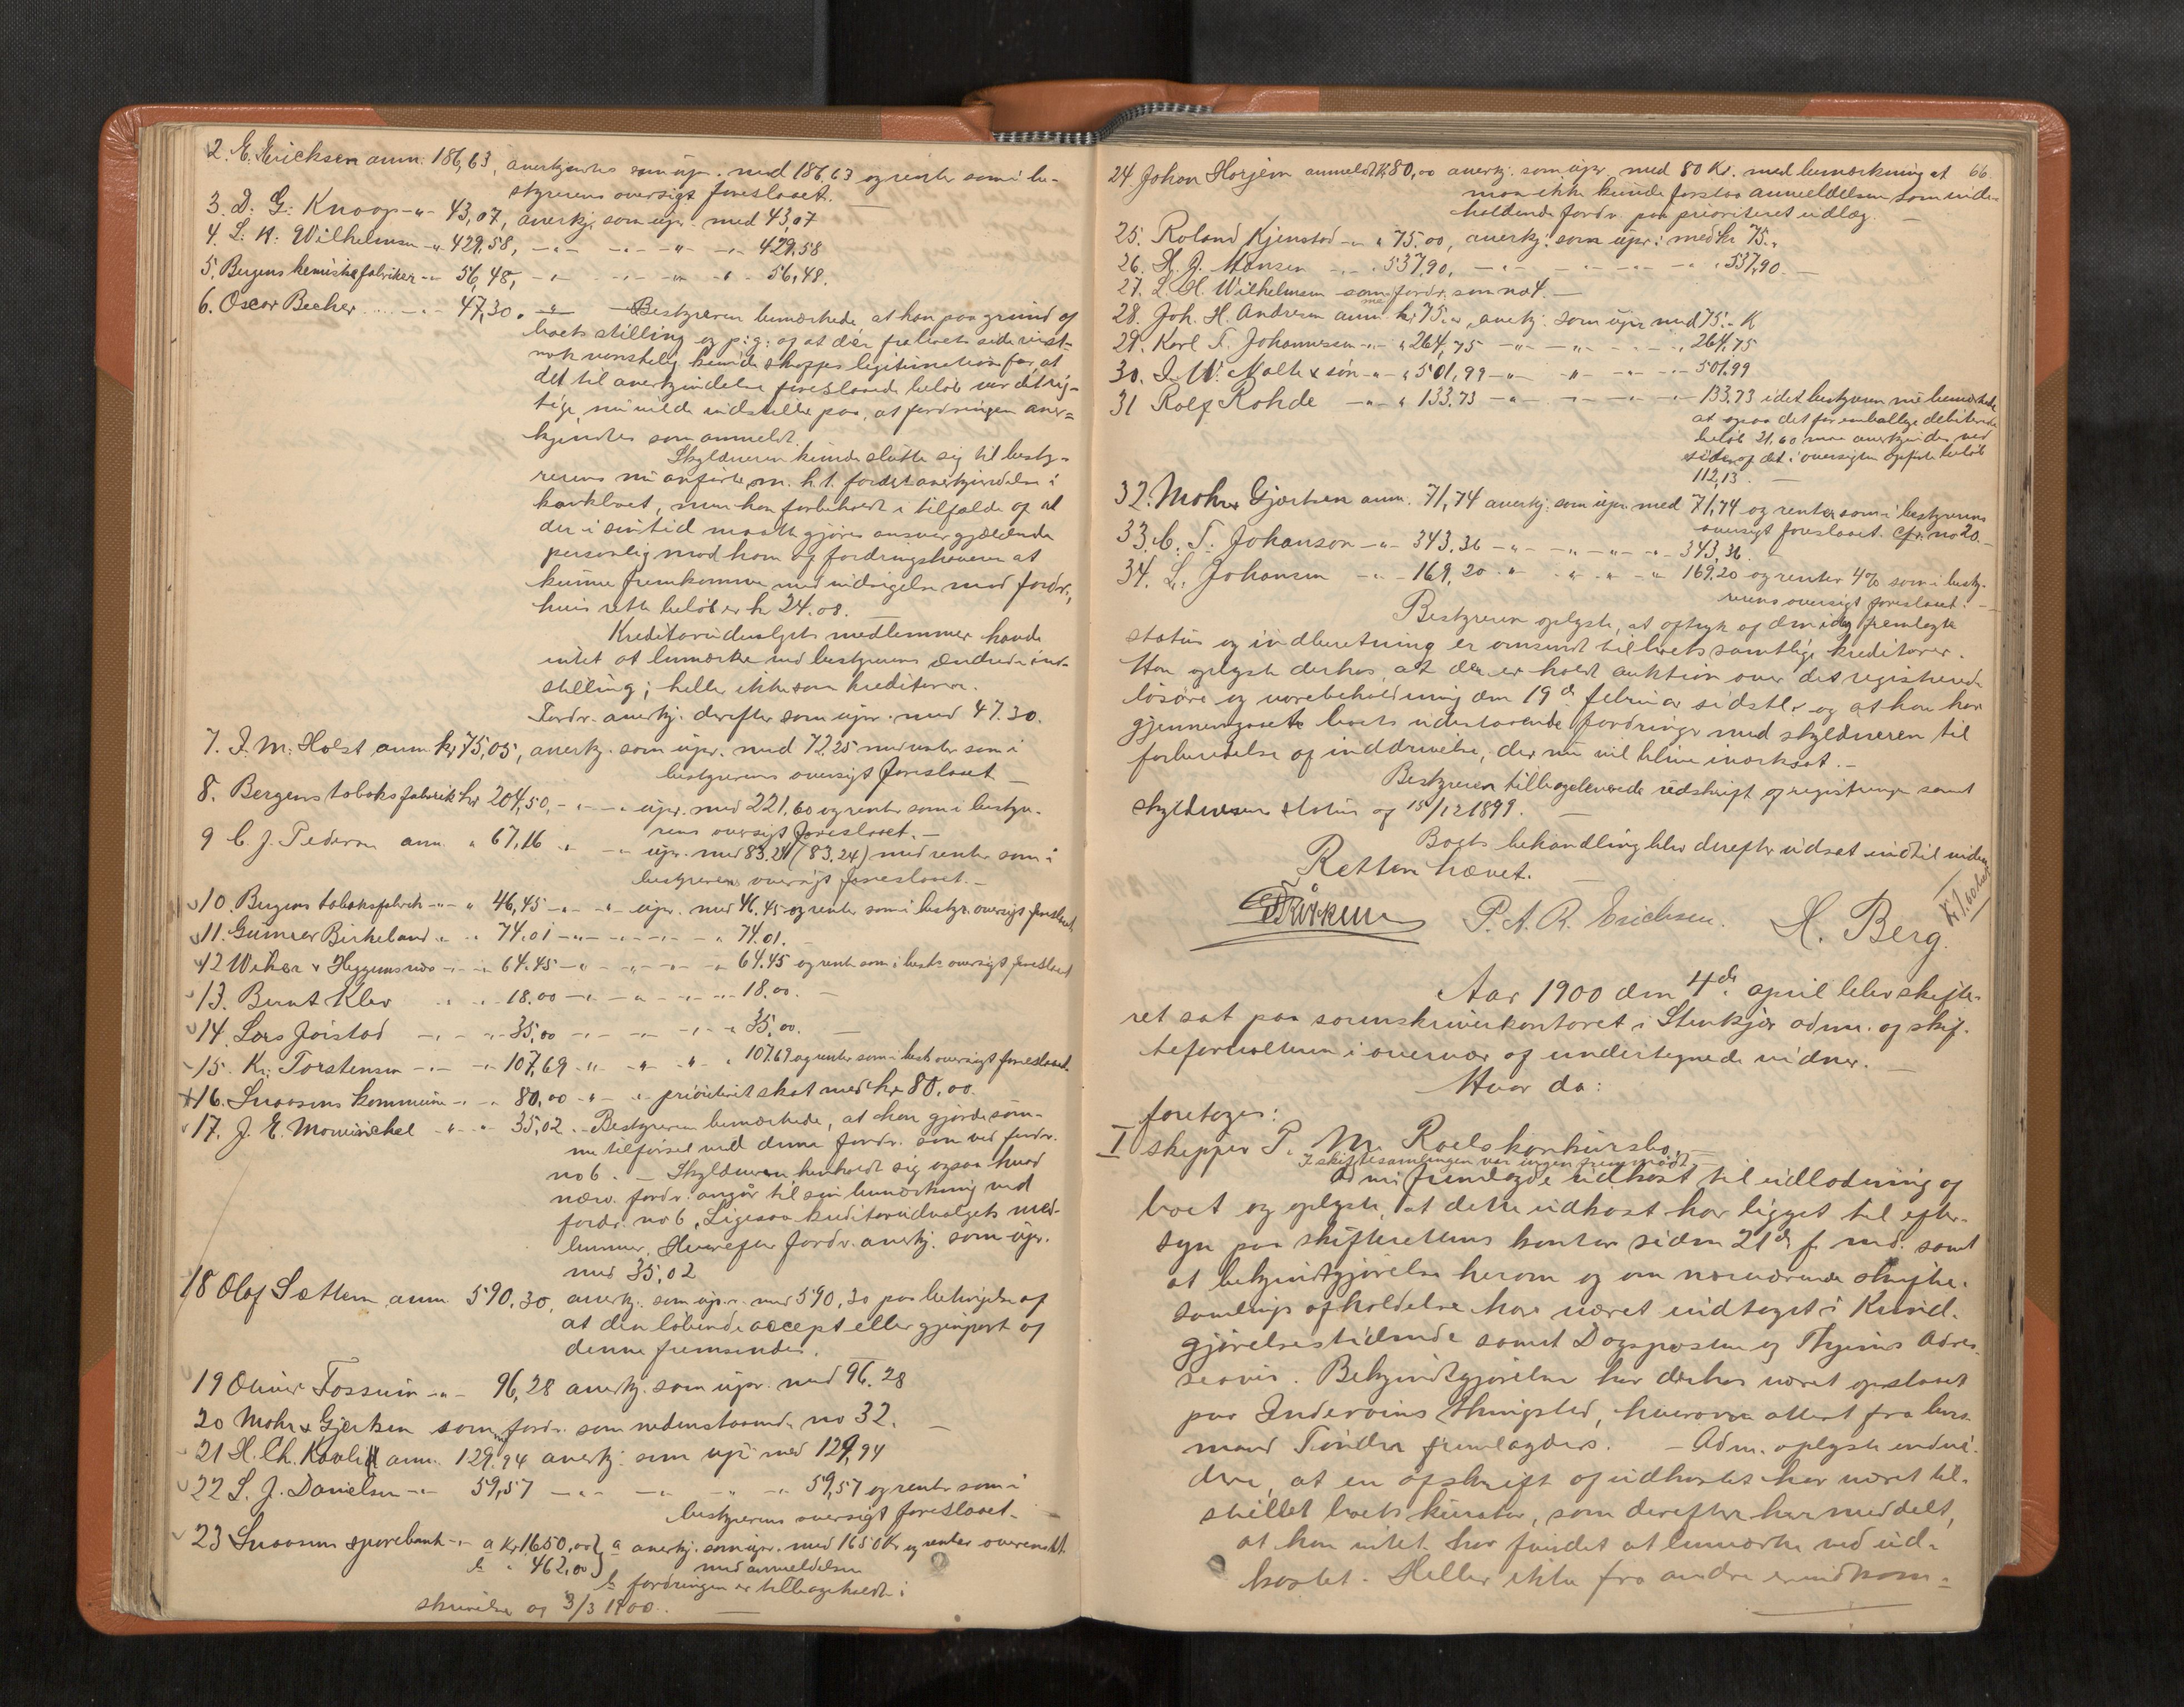 2. E. Ericksen anm. 186,63, anerkjendtes som upr. med 186,63 og renter som i be-
styrerens oversigt foreslaaet.
3. D. G. Knoop -"- 43,07, anerkj. som upr. med 43,07
4. L. H. Wilhelmsen -"- 429,58, -"- -"- -"- 429,58
5. Bergens kemiske fabriker -"- 56,48, -"- -"- -"- 56,48.
6. Oscar Becher -"- 47,30. -"- Bestyreren bemærkede, at han paa grund af
boets stilling og p. g. af at der fra boets side vist-
nok vanskelig kunde skaffes legitimation for, at
det til anerkjendelse foreslaaede beløb var det rig-
tige, nu vilde indstille paa, at fordringen aner-
kjendtes som anmeldt.
Skyldneren kunde slutte sig til besty-
rerens nu anførte m. h. t. fordr. anerkjendelse i
konkboet, men han forbeholdt i tilfælde af at
der i sin tid maatte gjøres ansvar gjældende
personlig mod ham og fordringshaveren at
kunne fremkomme med indsigelse mod fordr.,
hvis rette beløb er kr 24.08.
Kreditorudvalgets medlemmer havde
intet at bemærke ved bestyrerens ændrede ind-
stilling; heller ikke som kreditorer.
Fordr. anerkj. derefter som upr. med 47.30.
7. J. M. Holst anm. kr 75,05, anerkj. som upr. med 72.25 med renter som i
bestyrerens oversigt foreslaaet
8. Bergens tobaksfabrik kr 204,50, -"- -"- upr. med 221,60 og renter som i besty-
rerens oversigt foreslaaet.
9 C. J. Pedersen anm. " 67,16 -"- -"- upr. med 83.24 (83.24) med renter som i
bestyrerens oversigt foreslaaet.
10. Bergens tobaksfabrik -"- " 46,45 -"- -"- upr. med 46.45 og renter som i bestyr. oversigt foreslaaet
11. Gunner Birkeland -"- " 74.01 -"- -"- -"- " 74.01.
12 Wiker & Heggemsnes -"- 64.45 -"- -"- -"- " 64.45 og renter som i bests oversigt foreslaaet
13. Bernt Klev -"- 18.00 -"- -"- -"- 18.00.
14. Lars Jörstad -"- 35,00 -"- -"- -"- 35,00.
15. Kr. Torstensen -"- 107,69 -"- -"- -"- 107.69 og renter som i bests oversigt foreslaaet.
16. Snaasens kommune -"- 80,00 -"- -"- prioriteret skat med kr 80,00.
17. J. E. Mowinckel -"- 35,02. Bestyreren bemærkede, at han gjorde sam-
me tilførsel ved denne fordr. som ved fordr.
no 6. – Skyldneren henholdt sig ogsaa hvad
nærv. fordr. angår til sin bemærkning ved
fordr. no 6, Ligesaa kreditorudvalgets med-
lemmer. Hvorefter fordr. anerkj. som upr.
med 35,02
18 Olaf Sættem anm. 590.30, anerkj. som upr. med 590,30 paa betingelse af
at den løbende accept eller gjenpart af
denne fremsendes.
19 Oliver Fossum -"- 96,28 anerkj. som upr. med 96.28
20 Mohr & Gjertsen samme fordr. som nedenstaaende no 32.
21 H. Ch. Kavli anm. 129.94 anerkj. som upr. med 129,94
22 L. J. Danielsen -"- 59,57 -"- -"- -"- 59,57 og renter som i
bestyrerens oversigt foreslaaet.
23 Snaasens sparebank -"- a Kr 1650,00 } a anerkj. som upr. med 1650 Kr og renter overensst.
b " 462,00 } med anmeldelsen
b fordringen er tilbageholdt i
skrivelse af 3/3 1900.
24. Johan Horjem anmeldt kr 80,00 anerkj. som upr. med 80 Kr. med bemærkning at 66.
man ikke kunde forstaa anmeldelsen som inde-
holdende fordr. paa prioriteret udlæg.
25. Roland Kjenstad -"- " 75.00, anerkj. som upr. med kr 75.,
26. H. J. Hansen -"- 537,90, -"- -"- -"- 537,90.
27. L. H. Wilhelmsen samme fordr. som no 4.
28. Joh. H. Andresen anm. kr 75.00, anerkj. som upr med 75.- K
29. Karl T. Johannesen -"- " 264,75 -"- -"- -"- 264,75
30. J. W. Malte & søn -"- " 501,99 -"- -"- -"- 501.99
31 Rolf Rohde -"- " 133.73 -"- -"- -"- 133.73 idet bestyreren nu bemærkede
at ogsaa det for emballage debiterede
beløb 21,60 maa anerkjendes ved
siden af det i oversigten opførte beløb
112,13.
32. Mohr & Gjærtsen anm. 71,74 anerkj. som upr. med 71,74 og renter som i bestyrerens
oversigt foreslaaet. Cfr. no 20.
33. C. T. Johanson -"- 343.36 -"- -"- -"- 343,36.
34. L. Johansen -"- 169,20 -"- -"- -"- 169.20 og renter 4% som i besty-
rerens oversigt foreslaaet.
Bestyreren oplyste, at aftryk af den idag fremlagte
status og indberetning er omsendt til boets samtlige kreditorer.
Han oplyste derhos, at der er holdt auktion over det registrerede
løsøre og varebeholdning den 19de februar sidstl. og at han har
gjennemgaaet boets udestaaende fordringer med skyldneren til
forberedelse af inddrivelse, der nu vil blive iværksat.
Bestyreren tilbageleverede udskrift af registrering samt
skyldnerens status af 15/12 1899.
Boets behandling blev derefter udsat indtil videre
Retten hævet.
P. A. R. Erichsen. H. Berg.
Kr 1.60 bet.
Aar 1900 den 4de april blev skifte-
ret sat paa sorenskriverkontoret i Stenkjær adm. og skif-
teforvalteren i overvær af undertegnede vidner.
Hvor da:
foretoges:
I skipper P. M. Roels konkursbo.
I skiftesamlingen var ingen fremmødt.
Adm. fremlagde udkast til udlodning og
boet og oplyste, at dette udkast har ligget til efter-
syn paa skifterettens kontor siden 21de f. md. samt
at bekjendtgjørelse herom og om nærværende skifte-
samlings afholdelse har været indtaget i Kund-
gjørelsestidende samt Dagsposten og Thjems Adres-
seavis. Bekjendtgjørelsen har derhos været opslaaet
paa Inderøens thingsted, hvorom attest fra lens-
mand Tønder fremlagdes. – Adm. oplyste endvi-
dere, at en afskrift af udkastet har været til-
stillet boets kurator, som derefter har meddelt,
at han intet har fundet at bemærke ved ud-
kastet. Heller ikke fra andre er indkom-